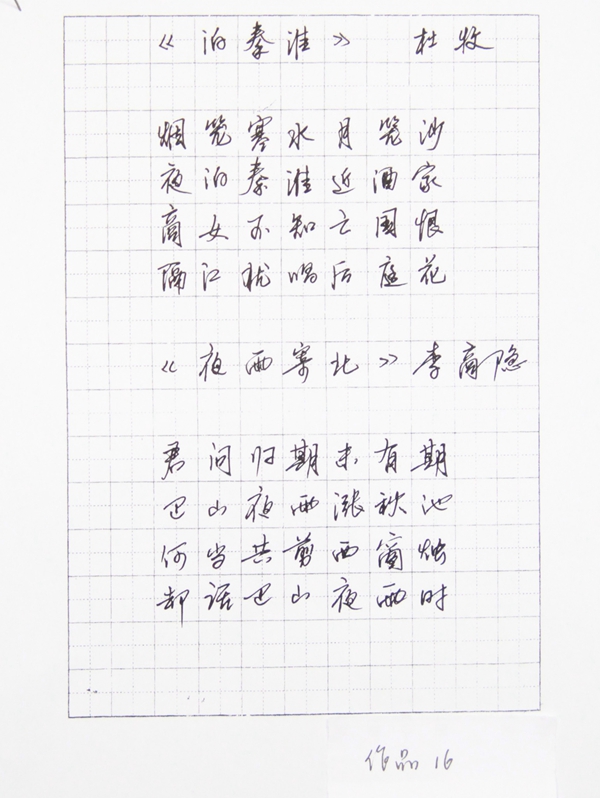 《泊秦淮》 杜牧
烟笼寒水月笼沙
夜泊秦淮近酒家
商女不知亡国恨
隔江犹唱后庭花
《夜雨寄北》李商隐
君问归期未有期
巴山夜雨涨秋池
何当共剪西窗烛
却话巴山夜雨时
作品16